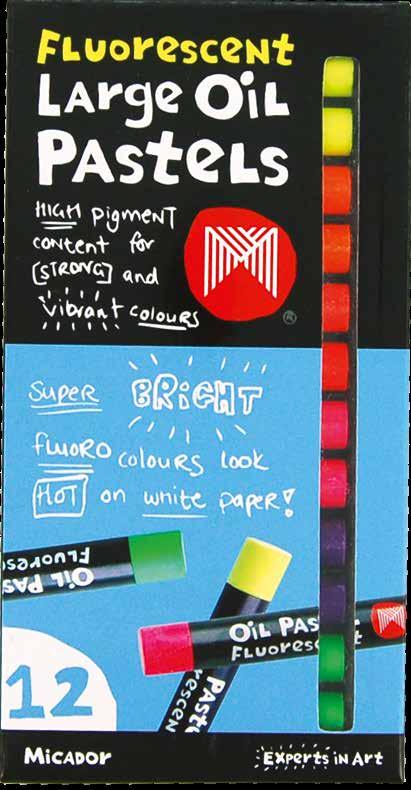 FLUORESCENT
LARGE OIL
PASTELS
HIGH pigment
content for
[STRONG] and
vibrant colours
®
SUPER BRIGHT
fluoro colours look
HOT on white paper!
OIL PAS
Fluoresc
OIL PAS
Fluoresc
Paste
rescen
12
MICADOR
Experts in Art